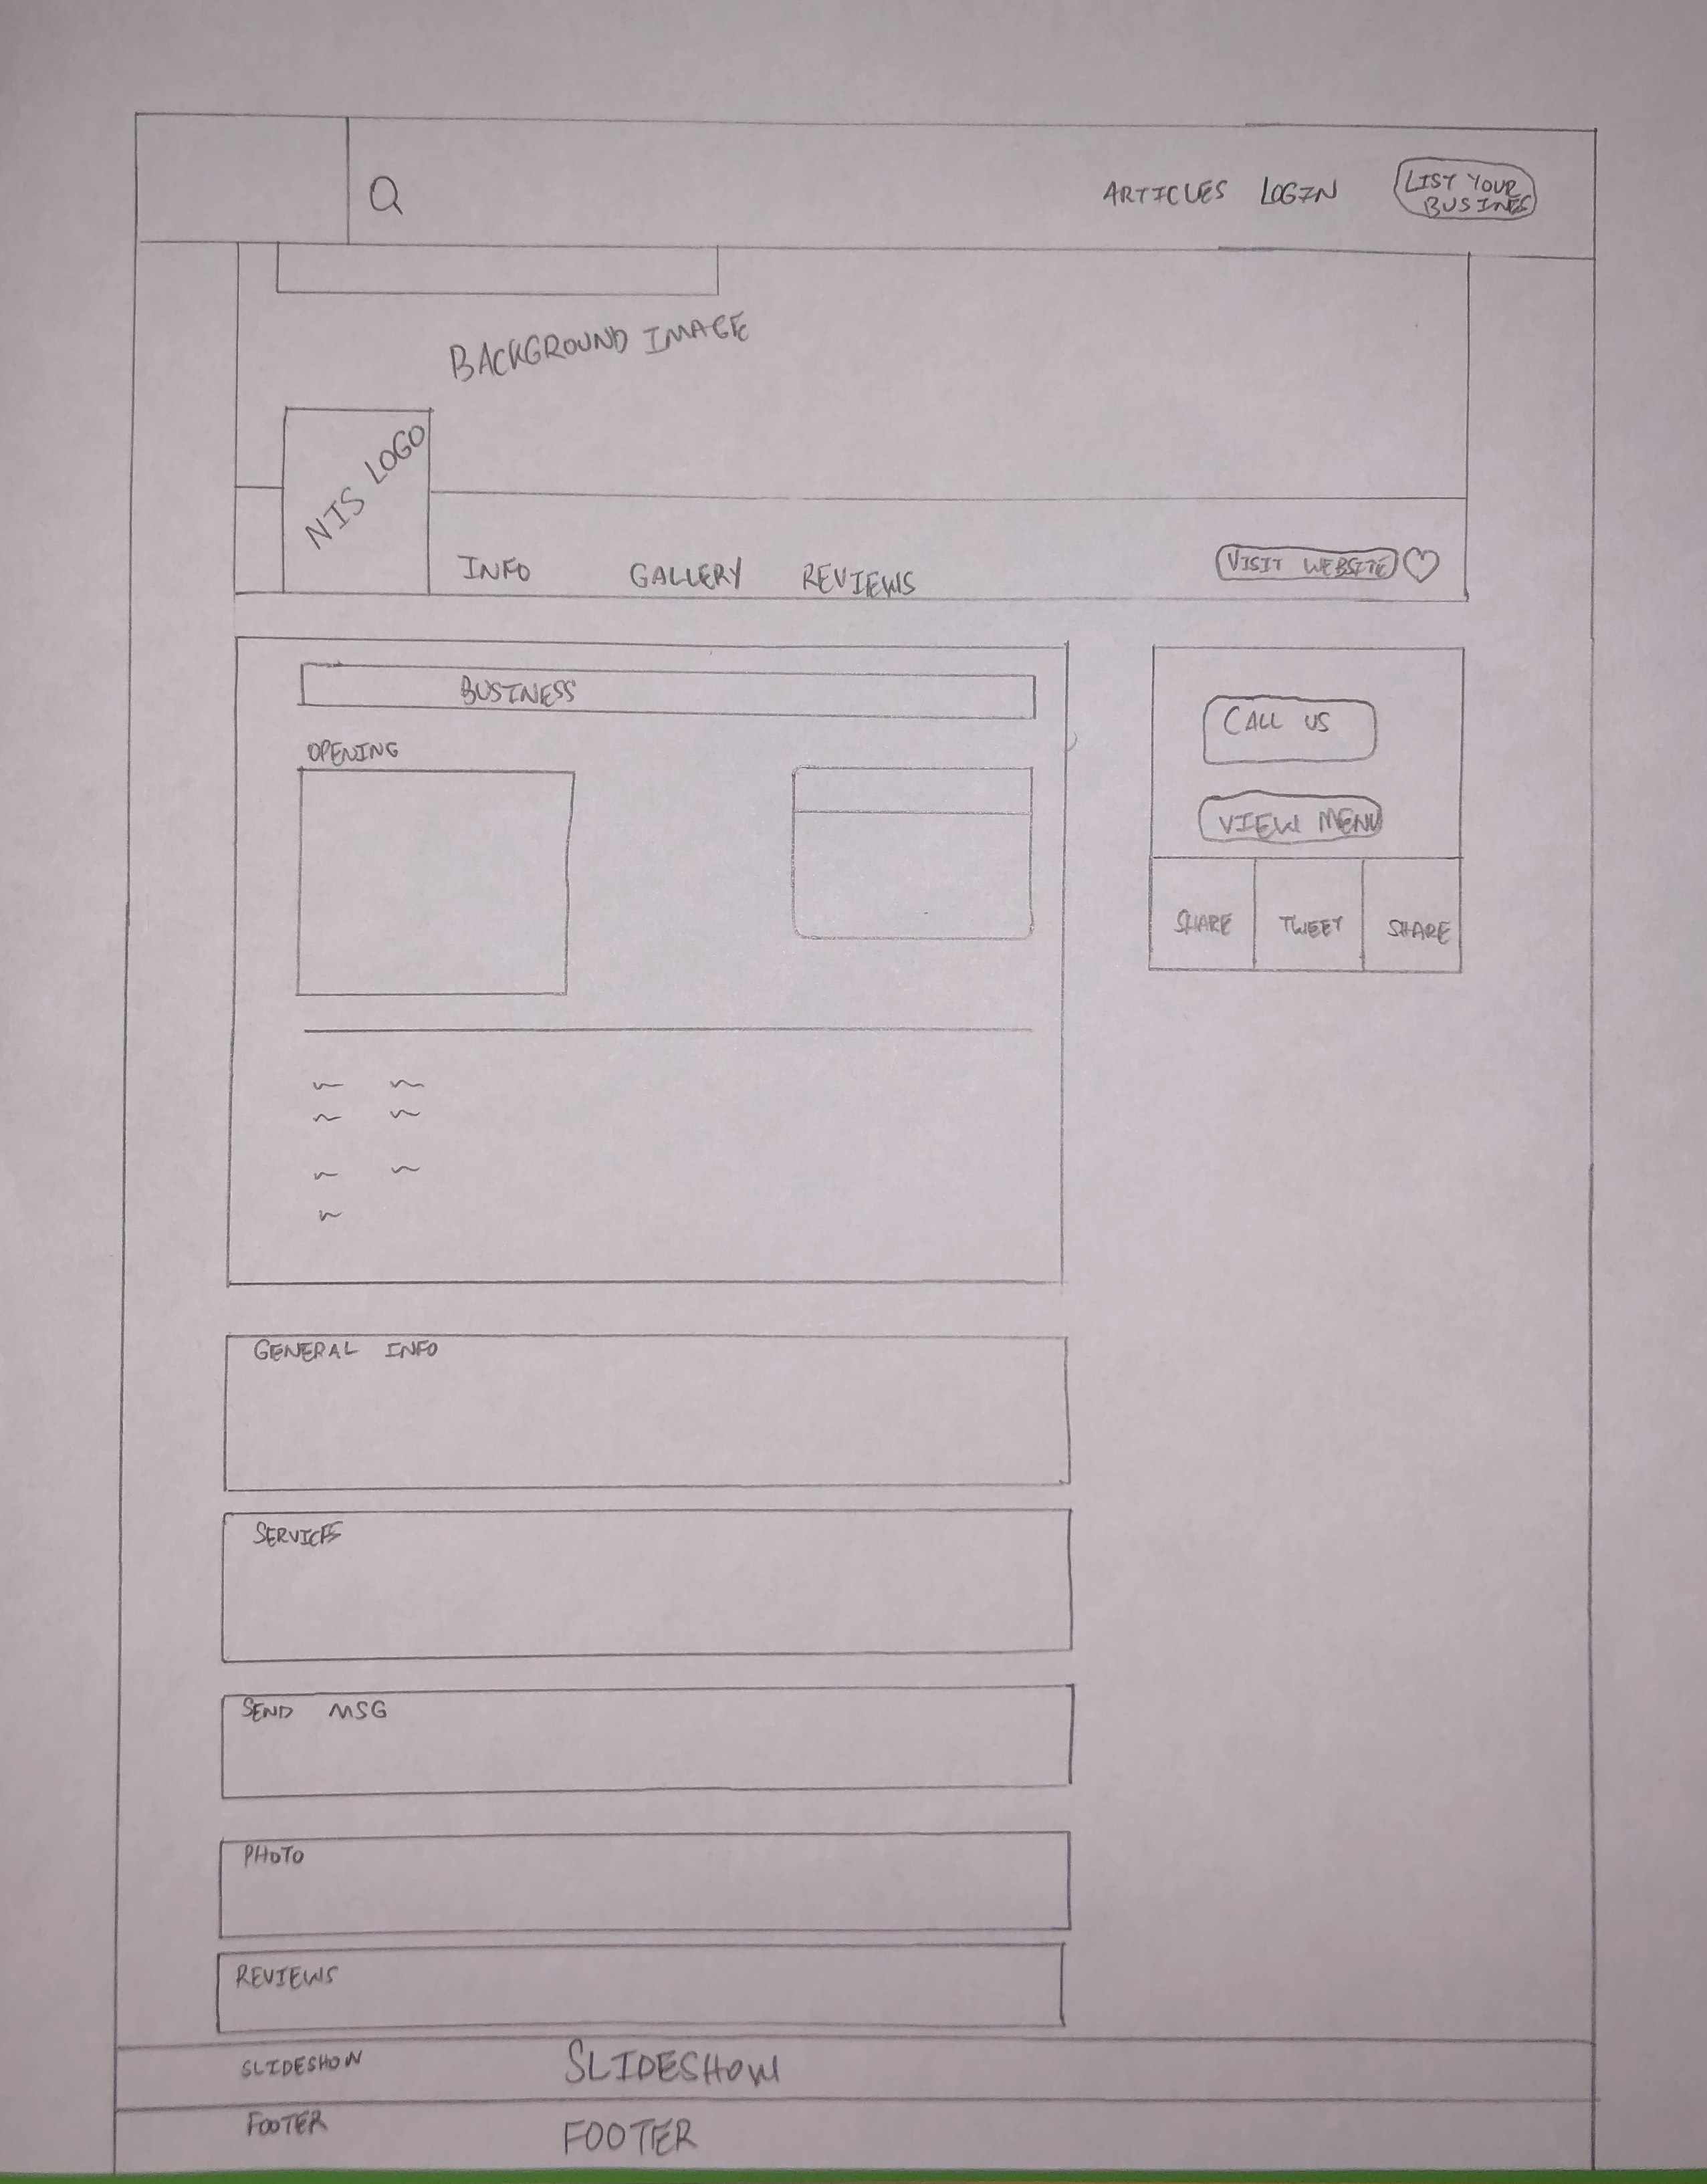 ARTICLES LOGIN LIST YOUR
BUSINES
BACKGROUND IMAGE
NIS LOGO
INFO GALLERY REVIEWS VISIT WEBSITE
BUSINESS
OPENING
CALL US
VIEW MENU
SHARE TWEET SHARE
GENERAL INFO
SERVICES
SEND MSG
PHOTO
REVIEWS
SLIDESHOW SLIDESHOW
FOOTER FOOTER